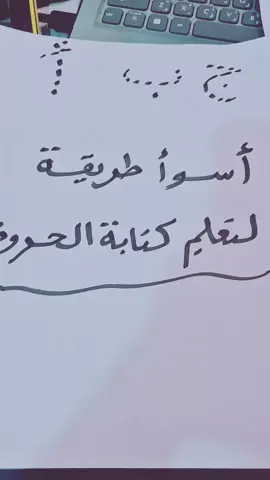 أ ب ج
أسوأ طريقة
لتعليم كتابة الحروف